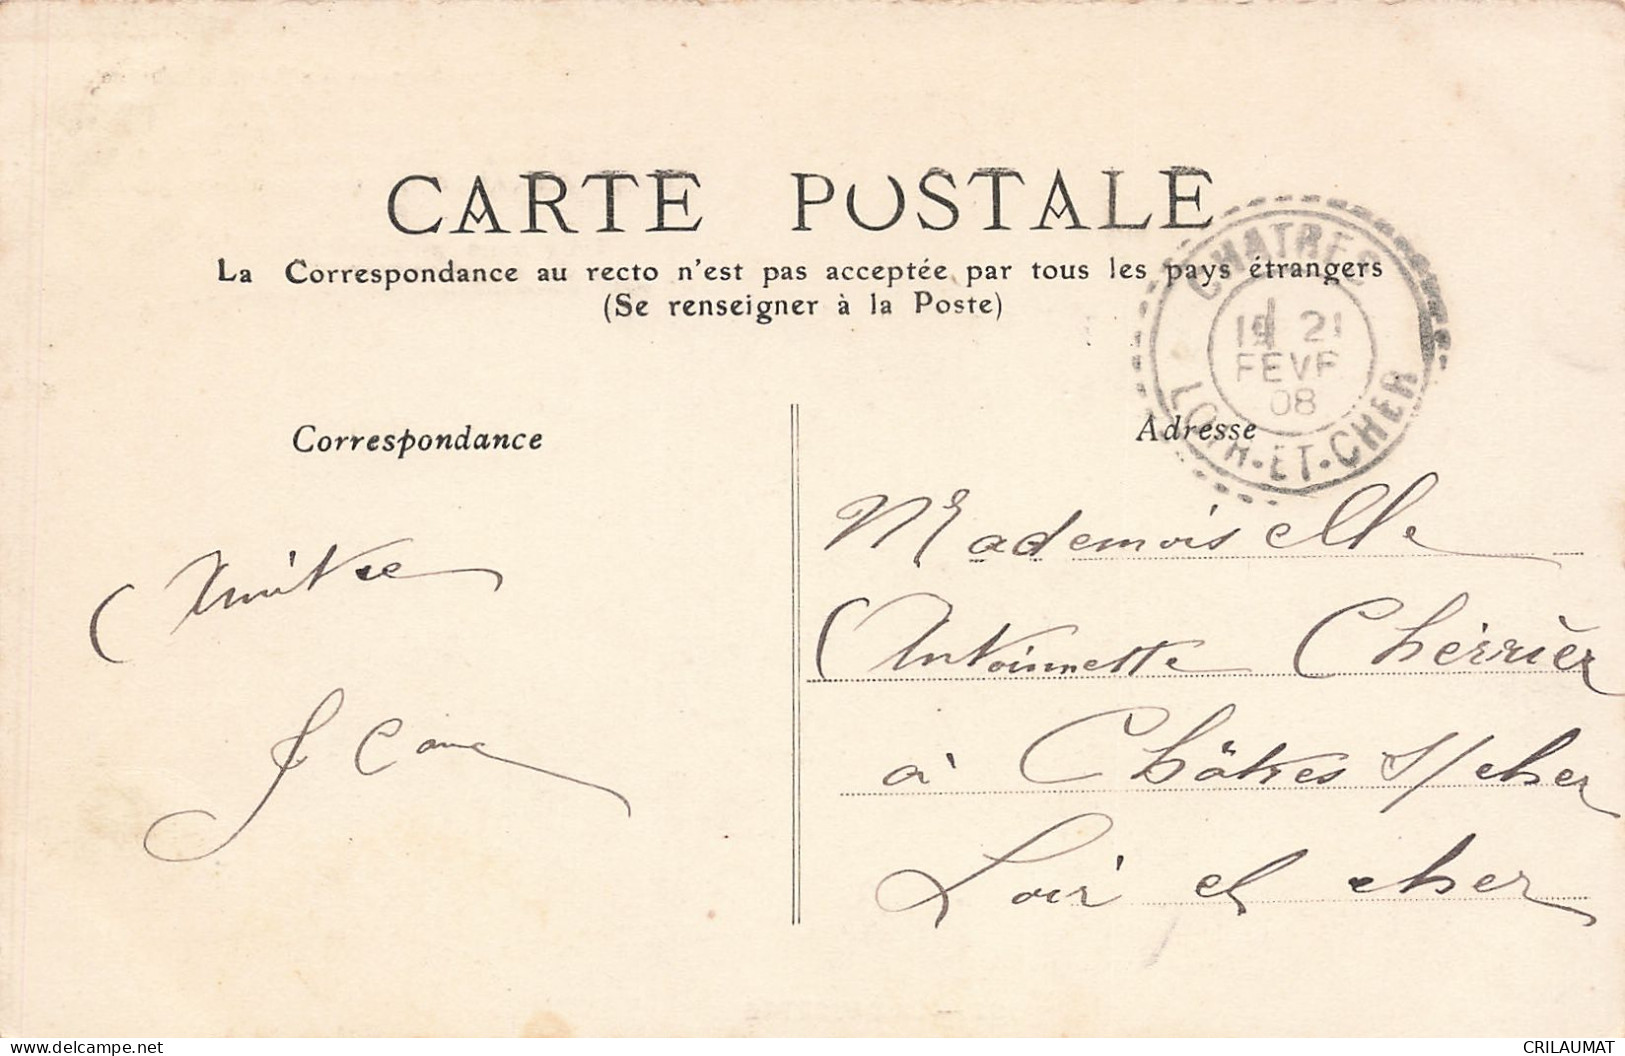 CARTE POSTALE
La Correspondance au recto n'est pas acceptée par tous les pays étrangers
(Se renseigner à la Poste)
CHATRES
19 21
FEVR
08
LOIR-ET-CHER
Correspondance
Amitiée
Adresse
Mademoiselle
Antoinnette Chérrièr
à Châtres s/cher
Loir et cher
CRILAUMAT
delcampe.net